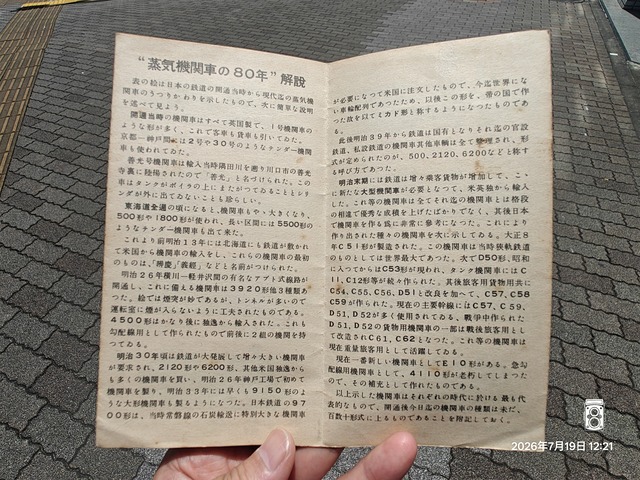 “蒸気機関車の80年” 解説
表の絵は日本の鉄道の開通当時から現代迄の蒸気機
関車のうつりかわりを示したもので、次に簡単な説明
を述べて見よう。
開通当時の機関車はすべて英国製で、1号機関車の
ような形が多く、これで客車も貨車も引いてみた。
京都—神戸間には2号や30号のようなテンダー機関
車も使われてゐた。
善光号機関車は輸入当時隅田川を遡り川口市の善光
寺裏に陸揚されたので「善光」と名づけられた。この
車はタンクがボイラの上にまたがつてゐることとシリ
ンダが外に出てゐないことも珍らしい。
東海道全通の頃になると、機関車もやゝ大きくなり、
500形や1800形が使われ、長い区間には5500形の
ようなテンダー機関車も出て来た。
これより前明治13年には北海道にも鉄道が敷かれ
て米国から機関車を輸入をし、これらの機関車の最初
のものは、「辨慶」「義經」などと名前がつけられた。
明治26年横川—軽井沢間の有名なアプト式線路が
開通し、これに備える機関車は3920形他3種類あ
つた。絵では煙突が妙であるが、トンネルが多いので
運転室に煙が入らないように工夫されたものである。
4500形はかなり後に独逸から輸入された。これも
勾配線用として作られたもので前後に2組の機関を持
つてゐる。
明治30年頃は鉄道が大発展して増々大きい機関車
が要求され、2120形や6200形、其他米国独逸から
も多くの機関車を買い、明治26年神戸工場で初めて
機関車を製り、明治33年には早くも9150形のよう
な大形機関車も製るようになつた。日本鉄道の97
00形は、当時常磐線の石炭輸送に特別大きな機関車
が必要になつて米国に注文したもので、今迄世界にな
い車輪配列であつたため、以後この形を、帝の国で作
つた故を以てミカド形と称するようになつたものであ
る。
此後明治39年から鉄道は国有となりそれ迄の官設
鉄道、私設鉄道の機関車其他車輌は全て整理され、形
式が定められたのが、500、2120、6200などと称す
る呼び方であつた。
明治末期には鉄道は増々乗客貨物が増加して、こゝ
に新たな大型機関車が必要となつて、米英独から輸入
した。これ等の機関車は全てそれ迄の機関車とは格段
の相違で優秀な成積を上げたばかりでなく、其後日本
で機関車を作る為に非常に参考になつた。これにより
作り出された種々の機関車を次に示してゐる。大正8
年C51形が製造された。この機関車は当時狭軌鉄道
のものとしては世界最大であつた。次でD50形、昭和
に入つてからはC53形が現われ、タンク機関車にはC
11、C12形等が続々作られた。其後旅客用貨物用共に
C54、C55、C56、D51と改良を加へて、C57、C58
C59が作られた。現在の主要幹線にはC57、C59、
D51、D52が多く使用されてゐる。戦争中作られた
D51、D52の貨物用機関車の一部は戦後旅客用とし
て改造されC61、C62となつた。これ等の機関車は
現在重量旅客用として活躍してゐる。
現在一番新しい機関車としてE10形がある。急勾
配線用機関車として、4110形が老朽してしまつた
ので、その補充として作れたものである。
以上示した機関車はそれぞれの時代に於ける最も代
表的なもので、開通後今日迄の機関車の種類は未だ、
百数十形式に上るものであることを附記しておく。
2026年7月19日 12:21